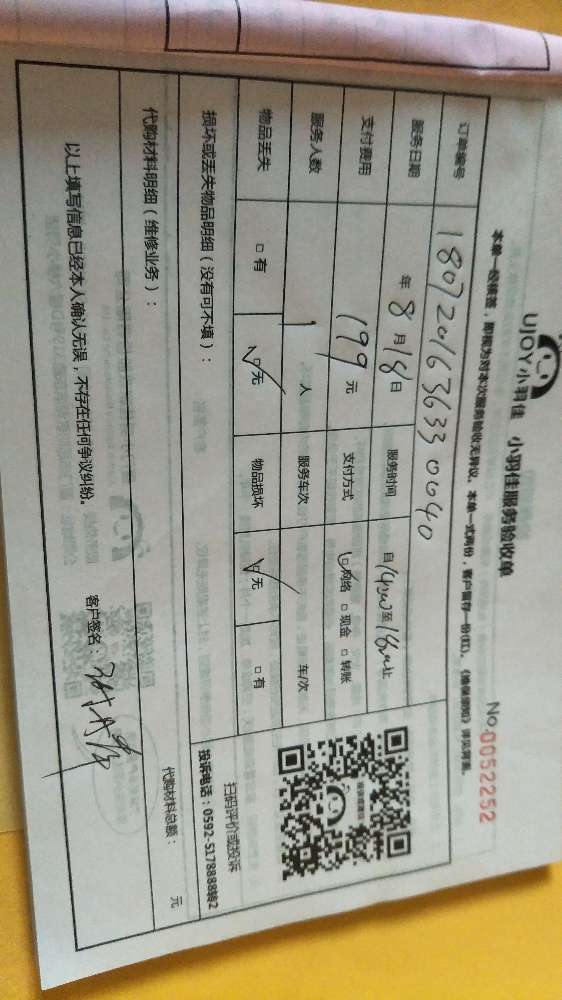 UJOY小羽佳 小羽佳服务验收单
No.0052252
本单一经核签，即视为对本次服务验收无异议。本单一式两份，客户留存一份(红)。《维保须知》详见背面。
订单编号 180720163633 0040
服务日期 年 8 月 18 日 服务时间 自 14:00 至 18:00 止
支付费用 199 元 支付方式 ☑网络 □现金 □转账
服务人数 1 人 服务车次 车/次
物品丢失 □有 ☑无 物品损坏 ☑无 □有
损坏或丢失物品明细（没有可不填）：
扫码评价或投诉
投诉电话：0592-5178888转2
代购材料明细（维修业务）：
代购材料总额： 元
以上填写信息已经本人确认无误，不存在任何争议纠纷。
客户签名：